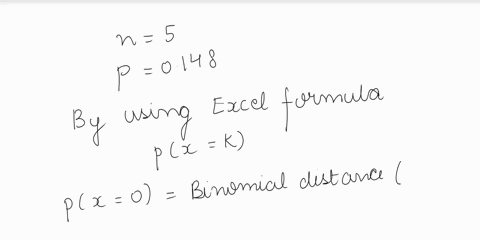 n = 5
p = 0.148
By using Excel formula
p(x = K)
p(x = 0) = Binomial distance (